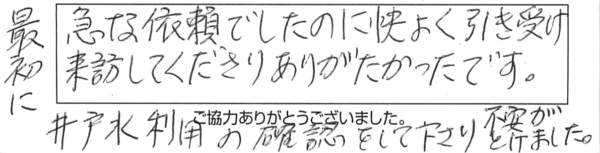 最初に
急な依頼でしたのに快よく引き受け
来訪してくださりありがたかったです。
ご協力ありがとうございました。
井戸水利用の確認をして下さり不安がとけました。